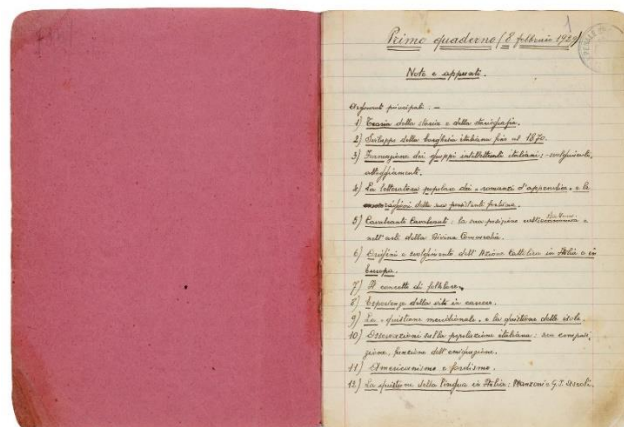 Primo quaderno (8 febbraio 1929)
Note e appunti.
Argomenti principali: —
1) Teoria della storia e della storiografia.
2) Sviluppo della borghesia italiana fino al 1870.
3) Formazione dei gruppi intellettuali italiani: svolgimento,
atteggiamenti.
4) La letteratura popolare dei « romanzi d'appendice » e le
ragioni della sua persistente fortuna.
5) Cavalcante Cavalcanti: la sua posizione nella
nell'arte della Divina Commedia.
6) Origini e svolgimento dell'Azione Cattolica in Italia e in
Europa.
7) Il concetto di folklore.
8) Esperienze della vita in carcere.
9) La « quistione meridionale » e la quistione delle isole.
10) Osservazioni sulla popolazione italiana: sua composi-
zione, funzione dell'emigrazione.
11) Americanismo e fordismo.
12) La quistione della lingua in Italia: Manzoni e G. I. Ascoli.